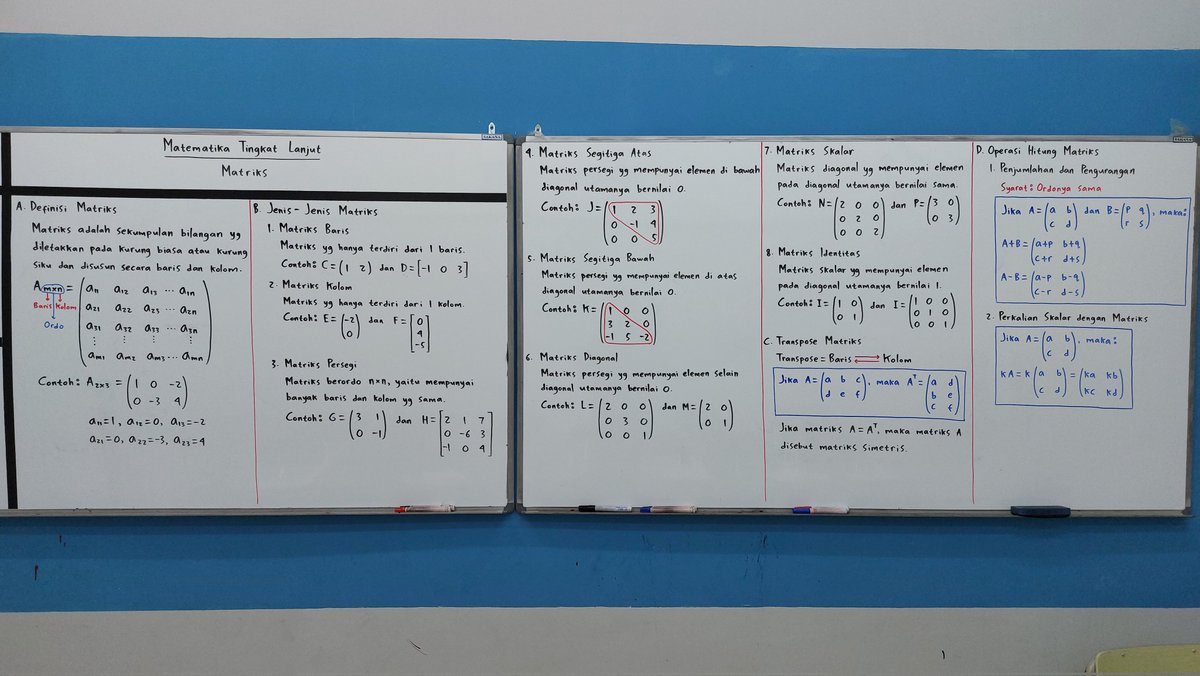 Matematika Tingkat Lanjut
Matriks
A. Definisi Matriks
Matriks adalah sekumpulan bilangan yg
diletakkan pada kurung biasa atau kurung
siku dan disusun secara baris dan kolom.
A m×n = (a11 a12 a13 ... a1n
Baris Kolom a21 a22 a23 ... a2n
Ordo a31 a32 a33 ... a3n
⋮ ⋮ ⋮ ⋮
am1 am2 am3 ... amn)
Contoh: A2×3 = (1 0 -2
0 -3 4)
a11=1, a12=0, a13=-2
a21=0, a22=-3, a23=4
B. Jenis-Jenis Matriks
1. Matriks Baris
Matriks yg hanya terdiri dari 1 baris.
Contoh: C=(1 2) dan D=[-1 0 3]
2. Matriks Kolom
Matriks yg hanya terdiri dari 1 kolom.
Contoh: E=(-2 dan F=[0
0) 4
-5]
3. Matriks Persegi
Matriks berordo n×n, yaitu mempunyai
banyak baris dan kolom yg sama.
Contoh: G=(3 1 dan H=[2 1 7
0 -1) 0 -6 3
-1 0 4]
4. Matriks Segitiga Atas
Matriks persegi yg mempunyai elemen di bawah
diagonal utamanya bernilai 0.
Contoh: J=(1 2 3
0 -1 4
0 0 5)
5. Matriks Segitiga Bawah
Matriks persegi yg mempunyai elemen di atas
diagonal utamanya bernilai 0.
Contoh: K=(1 0 0
3 2 0
-1 5 -2)
6. Matriks Diagonal
Matriks persegi yg mempunyai elemen selain
diagonal utamanya bernilai 0.
Contoh: L=(2 0 0 dan M=(2 0
0 3 0 0 1)
0 0 1)
7. Matriks Skalar
Matriks diagonal yg mempunyai elemen
pada diagonal utamanya bernilai sama.
Contoh: N=(2 0 0 dan P=(3 0
0 2 0 0 3)
0 0 2)
8. Matriks Identitas
Matriks skalar yg mempunyai elemen
pada diagonal utamanya bernilai 1.
Contoh: I=(1 0 dan I=(1 0 0
0 1) 0 1 0
0 0 1)
C. Transpose Matriks
Transpose = Baris ⇄ Kolom
Jika A=(a b c, maka Aᵀ=(a d
d e f) b e
c f)
Jika matriks A=Aᵀ, maka matriks A
disebut matriks simetris.
D. Operasi Hitung Matriks
1. Penjumlahan dan Pengurangan
Syarat: Ordonya sama
Jika A=(a b dan B=(p q, maka:
c d) r s)
A+B=(a+p b+q
c+r d+s)
A-B=(a-p b-q
c-r d-s)
2. Perkalian Skalar dengan Matriks
Jika A=(a b, maka:
c d)
kA=k(a b = (ka kb
c d) kc kd)